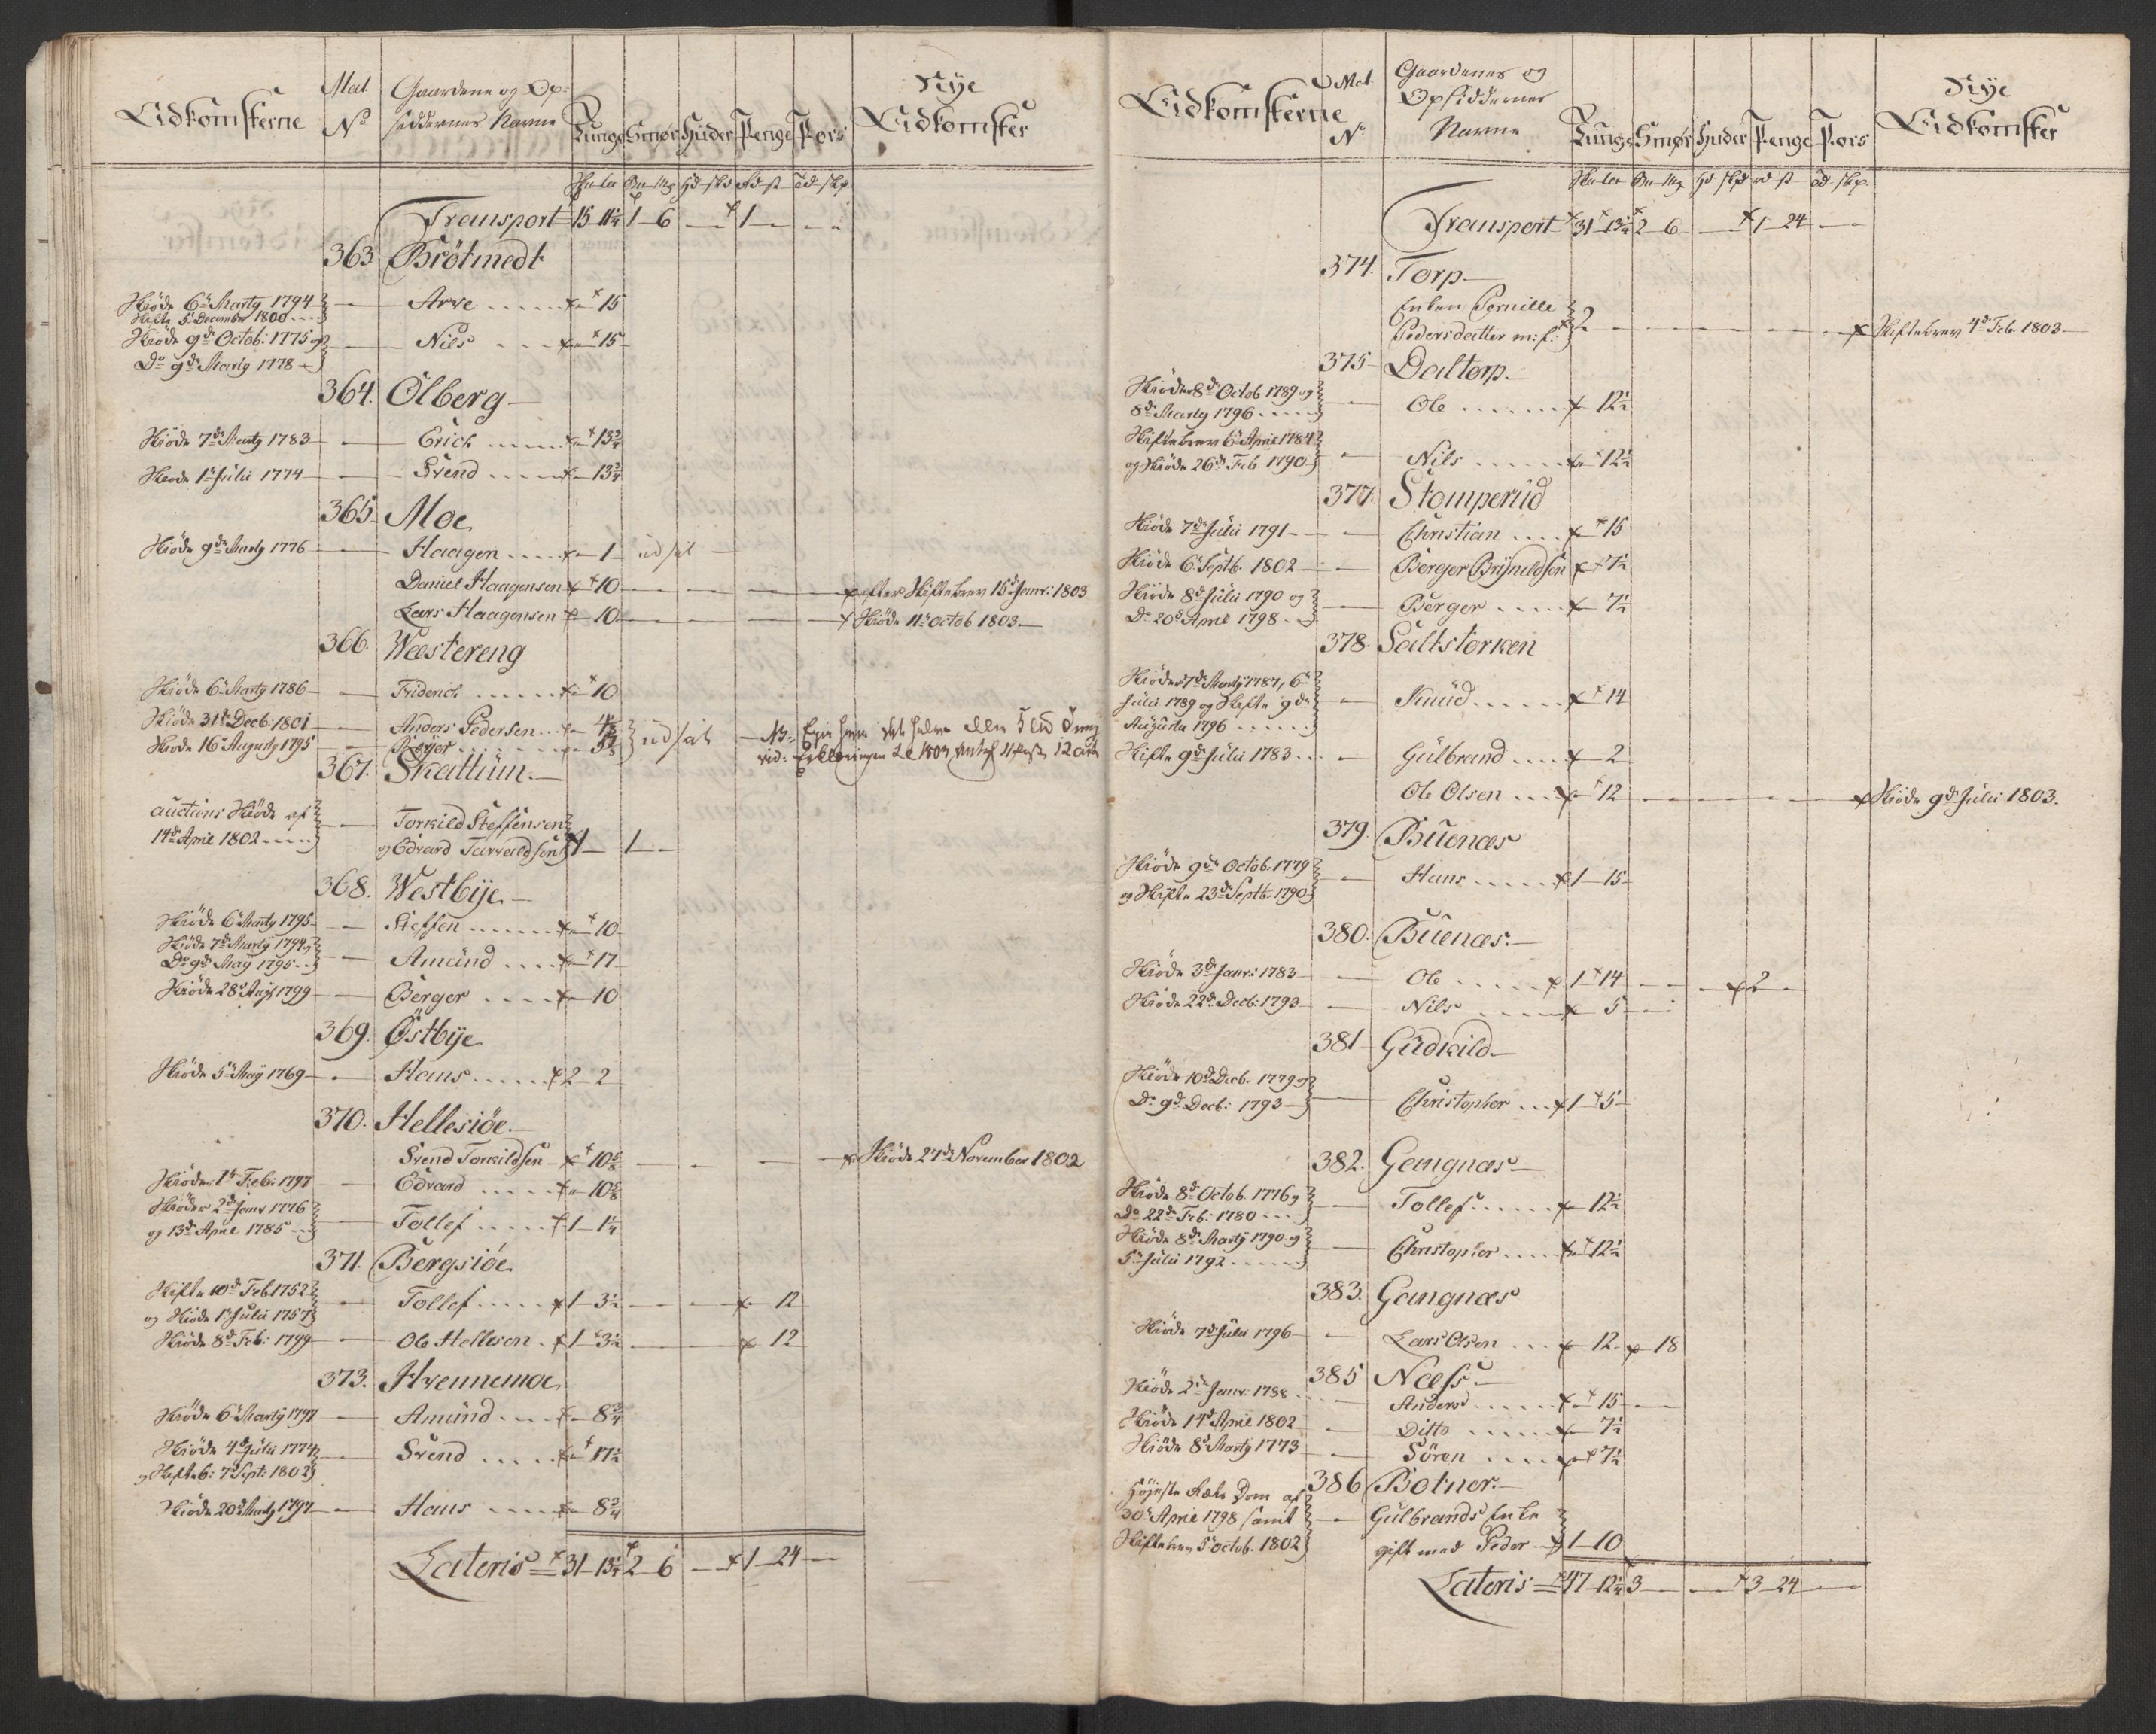 Adkomsterne
Mat No
Gaardene og Op-
siddernes Navne
Tunge Smør Huder Penge Pors
Nye Adkomster
Transport 15-11¼ 1-6 - 1 -
363. Brötmedt
Skiöde 6te Martÿ 1794
Skifte 5te December 1800 — Arve 15
Skiöde 9de Octob: 1775 og
Do 9de Martÿ 1778 — Nils 15
364. Ölberg
Skiöde 7de Martÿ 1783 — Erich 13¾
Skiöde 1te Julii 1774 — Svend 13¾
365. Moe
Skiöde 9de Martÿ 1776 — Haagen 1 udsat
Daniel Haagensen 10 — efter Skiftebrev 15de Janr: 1803
Lars Haagensen 10 — Skiöde 11te Octob 1803
366. Westereng
Skiöde 6te Martÿ 1786 — Friderich 10
Skiöde 31de Decb: 1801 — Anders Pedersen
Skiöde 16de Augusty 1795 — udsat
367. Skattum
auctions Skiöde af
14de April 1802 — Torkild Steffensen
og Edvard Tarvaldsen 1 - 1
368. Westbÿe
Skiöde 6te Martÿ 1795 — Steffen 10
Skiöde 7de Martÿ 1794 og
Do 9de Maÿ 1795 — Amünd 17
Skiöde 28de Aug 1799 — Berger 10
369. Östbÿe
Skiöde 5te Maÿ 1769 — Hans 2-2
370. Hellesiöe
Svend Torkildsen 10⅝ — Skiöde 27de November 1802
Skiöde 1te Feb: 1797 — Edvard 10⅝
Skiöder 2de Janr 1776
og 13de April 1785 — Tollef 1-1¼
371. Bergsiöe
Skifte 10de Feb 1752
og Skiöde 1te Julii 1757 — Tollef 1-3½ 12
Skiöde 8de Feb: 1799 — Ole Hellesen 1-3½ 12
373. Hvennemoe
Skiöde 6te Martÿ 1797 — Amünd 8¾
Skiöde 4de Julii 1774
og Skifteb: 7de Sept: 1802 — Svend 17½
Skiöde 20de Martÿ 1797 — Hans 8¾
Lateris 31-13¼ 2-6 - 1-24
Adkomsterne
Mat No
Gaardenes og
Opsiddernes
Navne
Tunge Smør Huder Penge Pors
Nye Adkomster
Transport 31-13¼ 2-6 - 1-24
374. Torp
Enken Pernille
Pedersdatter m:f: 2 — Skiftebrev 4de Feb 1803
375. Daltorp
Skiöder 8de Octob 1789 og
8de Martÿ 1796 — Ole 12½
Skiftebrev 6te April 1784
og Skiöde 26de Feb 1790 — Nils 12½
377. Stomperüd
Skiöde 7de Julii 1791 — Christian 15
Skiöde 6te Septb. 1802 — Berger Brÿnildsen 7½
Skiöde 8de Julii 1790 og
Do 20de April 1798 — Berger 7½
378. Saltstorken
Skiöder 7de Martÿ 1787, 6te
Julii 1789 og Skifte 9de
Augusti 1796 — Knüd 14
Skifte 9de Julii 1783 — Gülbrand 2
Ole Olsen 12 — Skiöde 9de Julii 1803.
379. Büenæs
Skiöde 9de Octob. 1779
og Skifte 23de Septb. 1790 — Hans 1-15
380. Büenæs
Skiöde 3de Janr: 1783 — Ole 1-14 2
Skiöde 22de Decb: 1793 — Nils 5
381 Güdkild
Skiöde 10de Decb. 1779 og
Do 9de Decb: 1793 — Christopher 1-5
382. Gangnæs
Skiöde 8de Octob. 1776 og
Do 22de Feb: 1780 — Tollef 12½
Skiöde 8de Martÿ 1790 og
5te Julii 1792 — Christopher 12½
383. Gangnæs
Skiöde 7de Julii 1796 — Lars Olsen 12 - 18
385 Næss
Skiöde 2de Janr: 1788 — Anders 15
Skiöde 14de April 1802 — Ditto 7½
Skiöde 8de Martÿ 1773 — Sören 7½
386 Botner
Höjeste Rets Dom af
30te April 1798 samt
Skiftebrev 5te Octob. 1802 — Gülbrands Enke
gift med Peder 1-10
Lateris 47-12¼ 3 - 3-24